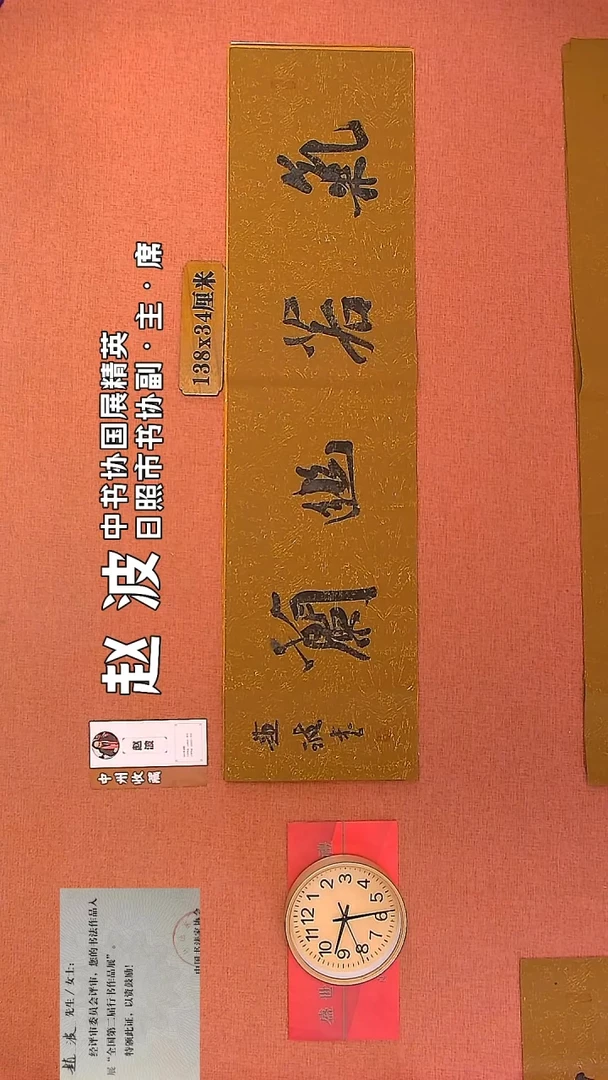 赵波 中书协国展精英
日照市书协副·主·席
138x34厘米
氣若幽蘭
赵波書
赵波
中州收藏
赵波 先生/女士:
经评审委员会评审,您的书法作品入
展“全国第二届行书作品展”。
特颁此证,以资鼓励!
中国书法家协会
盛世
12
1
2
3
4
5
6
7
8
9
10
11